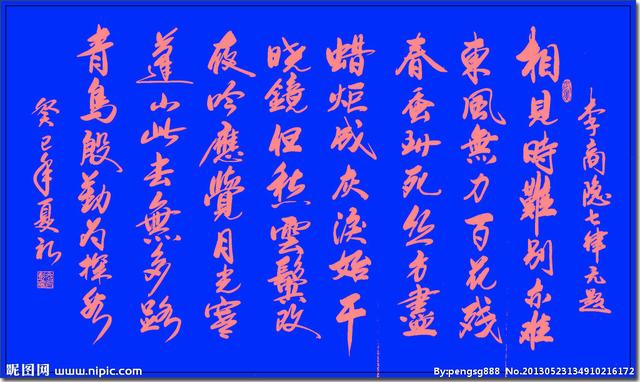 李商隐七律无题
相見時難别亦难
東風無力百花残
春蚕到死丝方盡
蜡炬成灰淚始干
晓鏡但愁雲鬢改
夜吟應覺月光寒
蓬山此去無多路
青鸟殷勤为探看
癸巳年夏
昵图网 www.nipic.com
By:pengsg888 No.20130523134910216172